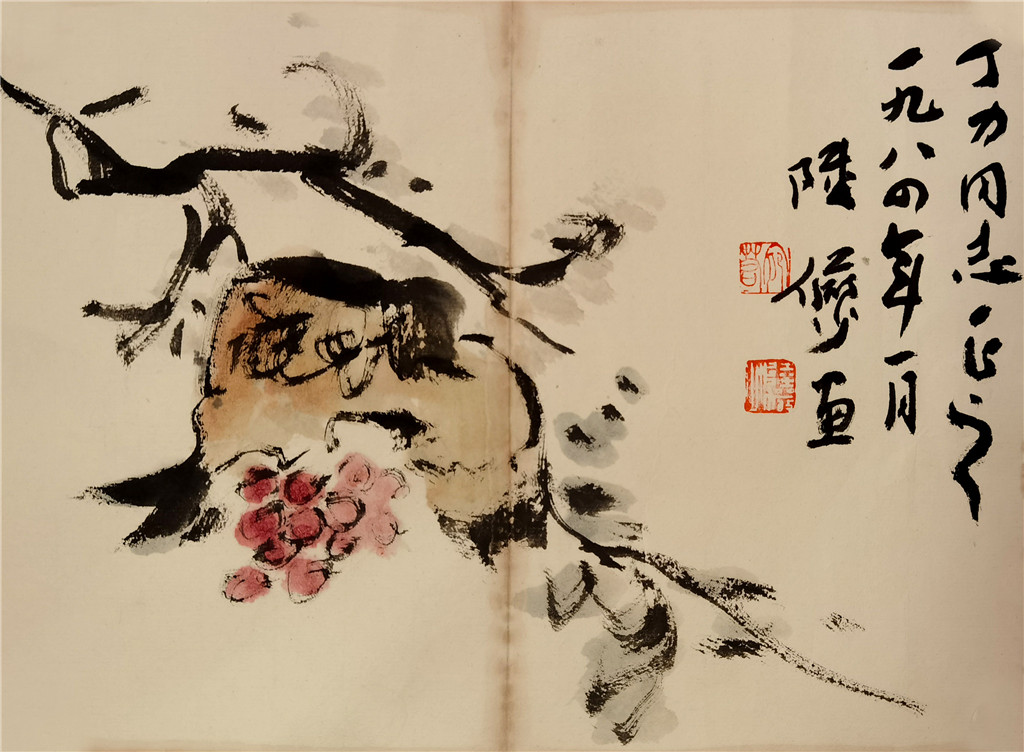 丁力同志正之
一九八四年一月
陸儼少画